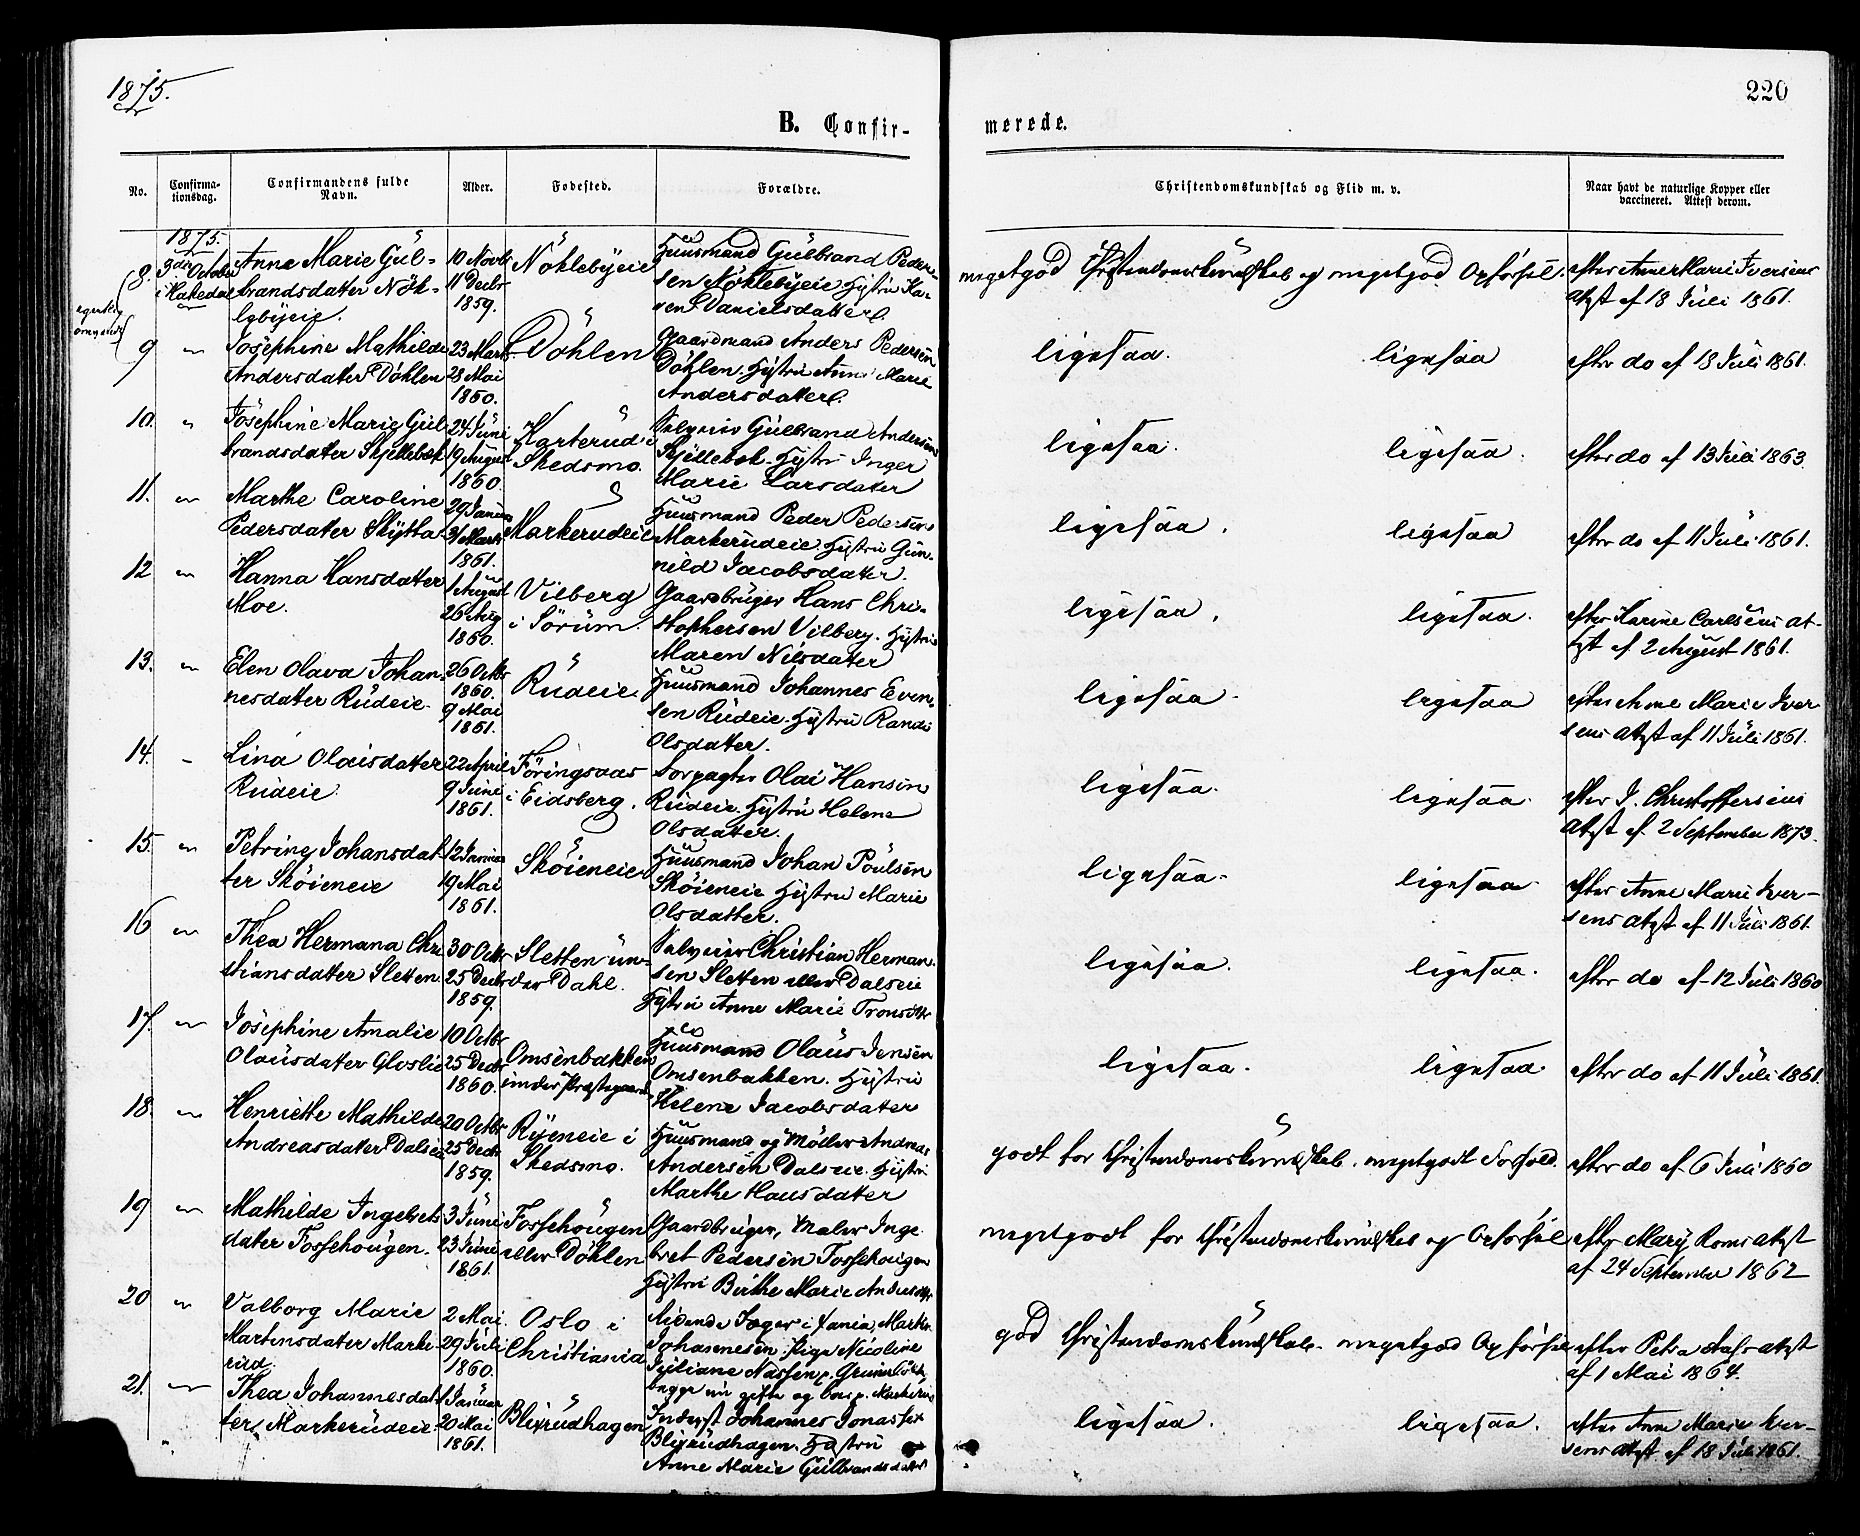 1875.
220
B. Confir-
merede.
No.
Confirma-
tionsdag.
Confirmandens fulde
Navn.
Alder.
Fødested.
Forældre.
Christendomskundskab og Flid m. v.
Naar havt de naturlige Kopper eller
vaccineret. Attest derom.
1875.
8. 3die October
i Hakedal
Anne Marie Gul-
brandsdater Nök-
lebyeie.
10 Novbr
11 Decbr
1859.
Nöklebyeie
Huusmand Gulbrand Peder-
sen Nöklebyeie Hustru Ka-
ren Danielsdatter.
megetgod Christendomskundskab og megetgod Opförsel.
efter Anne Marie Iversens
Attest af 18 Juli 1861.
9 "
Josephine Mathilde
Andersdater Döhlen
23 Marts
28 Mai
1860.
Döhlen
Gaardmand Anders Pedersen
Döhlen. Hustru Anne Marie
Andersdater.
ligesaa. ligesaa
efter do af 18 Juli 1861.
10. "
Josephine Marie Gul-
brandsdater Skjellebek
24 Juni
19 August
1860.
Karterud i
Skedsmo.
Selveier Gulbrand Andersens
Skjellebek. Hustru Inger
Marie Larsdater
ligesaa. ligesaa.
efter do af 13 Juli 1863.
11. "
Marthe Caroline
Pedersdater Skytta
29 Januar
31 Marts
1861.
Markerudeie
Huusmand Peder Pedersen
Markerudeie. Hustru Gun-
nild Jacobsdater.
ligesaa. ligesaa
efter do af 11 Juli 1861.
12 "
Hanna Hansdater
Moe.
1 August
26 Aug
1860.
Vilberg
i Sörum.
Gaardbruger Hans Chri-
stophersen Vilberg. Hustru
Maren Nilsdater
ligesaa. ligesaa.
efter Karine Carlsens At-
test af 2 August 1861.
13. "
Elen Olava Johan-
nesdater Rudeie.
26 Octbr
1860.
9 Mai
1861.
Rudeie.
Huusmand Johannes Even-
sen Rudeie. Hustru Randi
Olsdater.
ligesaa. ligesaa
efter Anne Marie Iver-
sens Attest af 11 Juli 1861.
14. "
Lina Olaisdater
Rudeie.
22 April
9 Juni
1861.
Föringsaas
i Eidsberg.
Forpagter Olai Hansen
Rudeie. Hustru Helene
Olsdater.
ligesaa. ligesaa.
efter J. Christoffersens
Attest af 2 September 1873.
15. "
Petrine Johansdat-
ter Sköieneie
12 Januar
19 Mai
1861.
Sköieneie
Huusmand Johan Poulsen
Sköieneie Hustru Marie
Olsdatter.
ligesaa. ligesaa
efter Anne Marie Iver-
sens Attest af 11 Juli 1861.
16 "
Thea Hermana Chri-
stiansdater Sletten
30 Octbr
25 Decbr
1859.
Sletten un-
der Dahl.
Selveier Christian Herman-
sen Sletten eller Dalseie
Hustru Anne Marie
ligesaa. ligesaa.
efter do af 12 Juli 1860
17. "
Josephine Amalie
Olausdater
10 Octbr
25 Decbr
1860.
Omsenbakken
under Præstegaard
Huusmand Olaus Jensen
Omsenbakken. Hustru
Helene Jacobsdater
ligesaa. ligesaa
efter do af 11 Juli 1861.
18. "
Henriette Mathilde
Andreasdater Dalseie
20 Octbr
25 Decbr
1859.
Ryeneie i
Skedsmo.
Huusmand og Möller Andreas
Andersen Dalseie. Hustru
Marthe Hansdater
godt for Christendomskundskab. megetgodt Forhold.
efter do af 6 Juli 1860
19 "
Mathilde Ingebrets-
dater Fossehougen.
3 Juni
23 Juni
1861.
Fossehougen
eller Döhlen
Gaardbruger, Maler Inge-
bret Pedersen Fossehougen
Hustru Birthe Marie
megetgodt for Christendomskundskab og Opförsel
efter Mary Roms Attest
af 24 September 1862
20 "
Valborg Marie
Martinsdater Marke-
rud.
2 Mai
29 Juli
1860.
Oslo i
Christiania
Johannesen. Pige Nicoline
Juliane
god Christendomskundskab. megetgod Opförsel
efter Petra Attest
af 1 Mai 1864.
21. "
Thea Johannesdat-
ter Markerudeie
1 Januar
20 Mai
1861.
Blixrudhagen
Inderst Johannes
Blixrudhagen. Hustru
Anne Marie Gulbrandsdater
ligesaa. ligesaa.
efter Anne Marie Iver-
sens Attest af 18 Juli 1861.